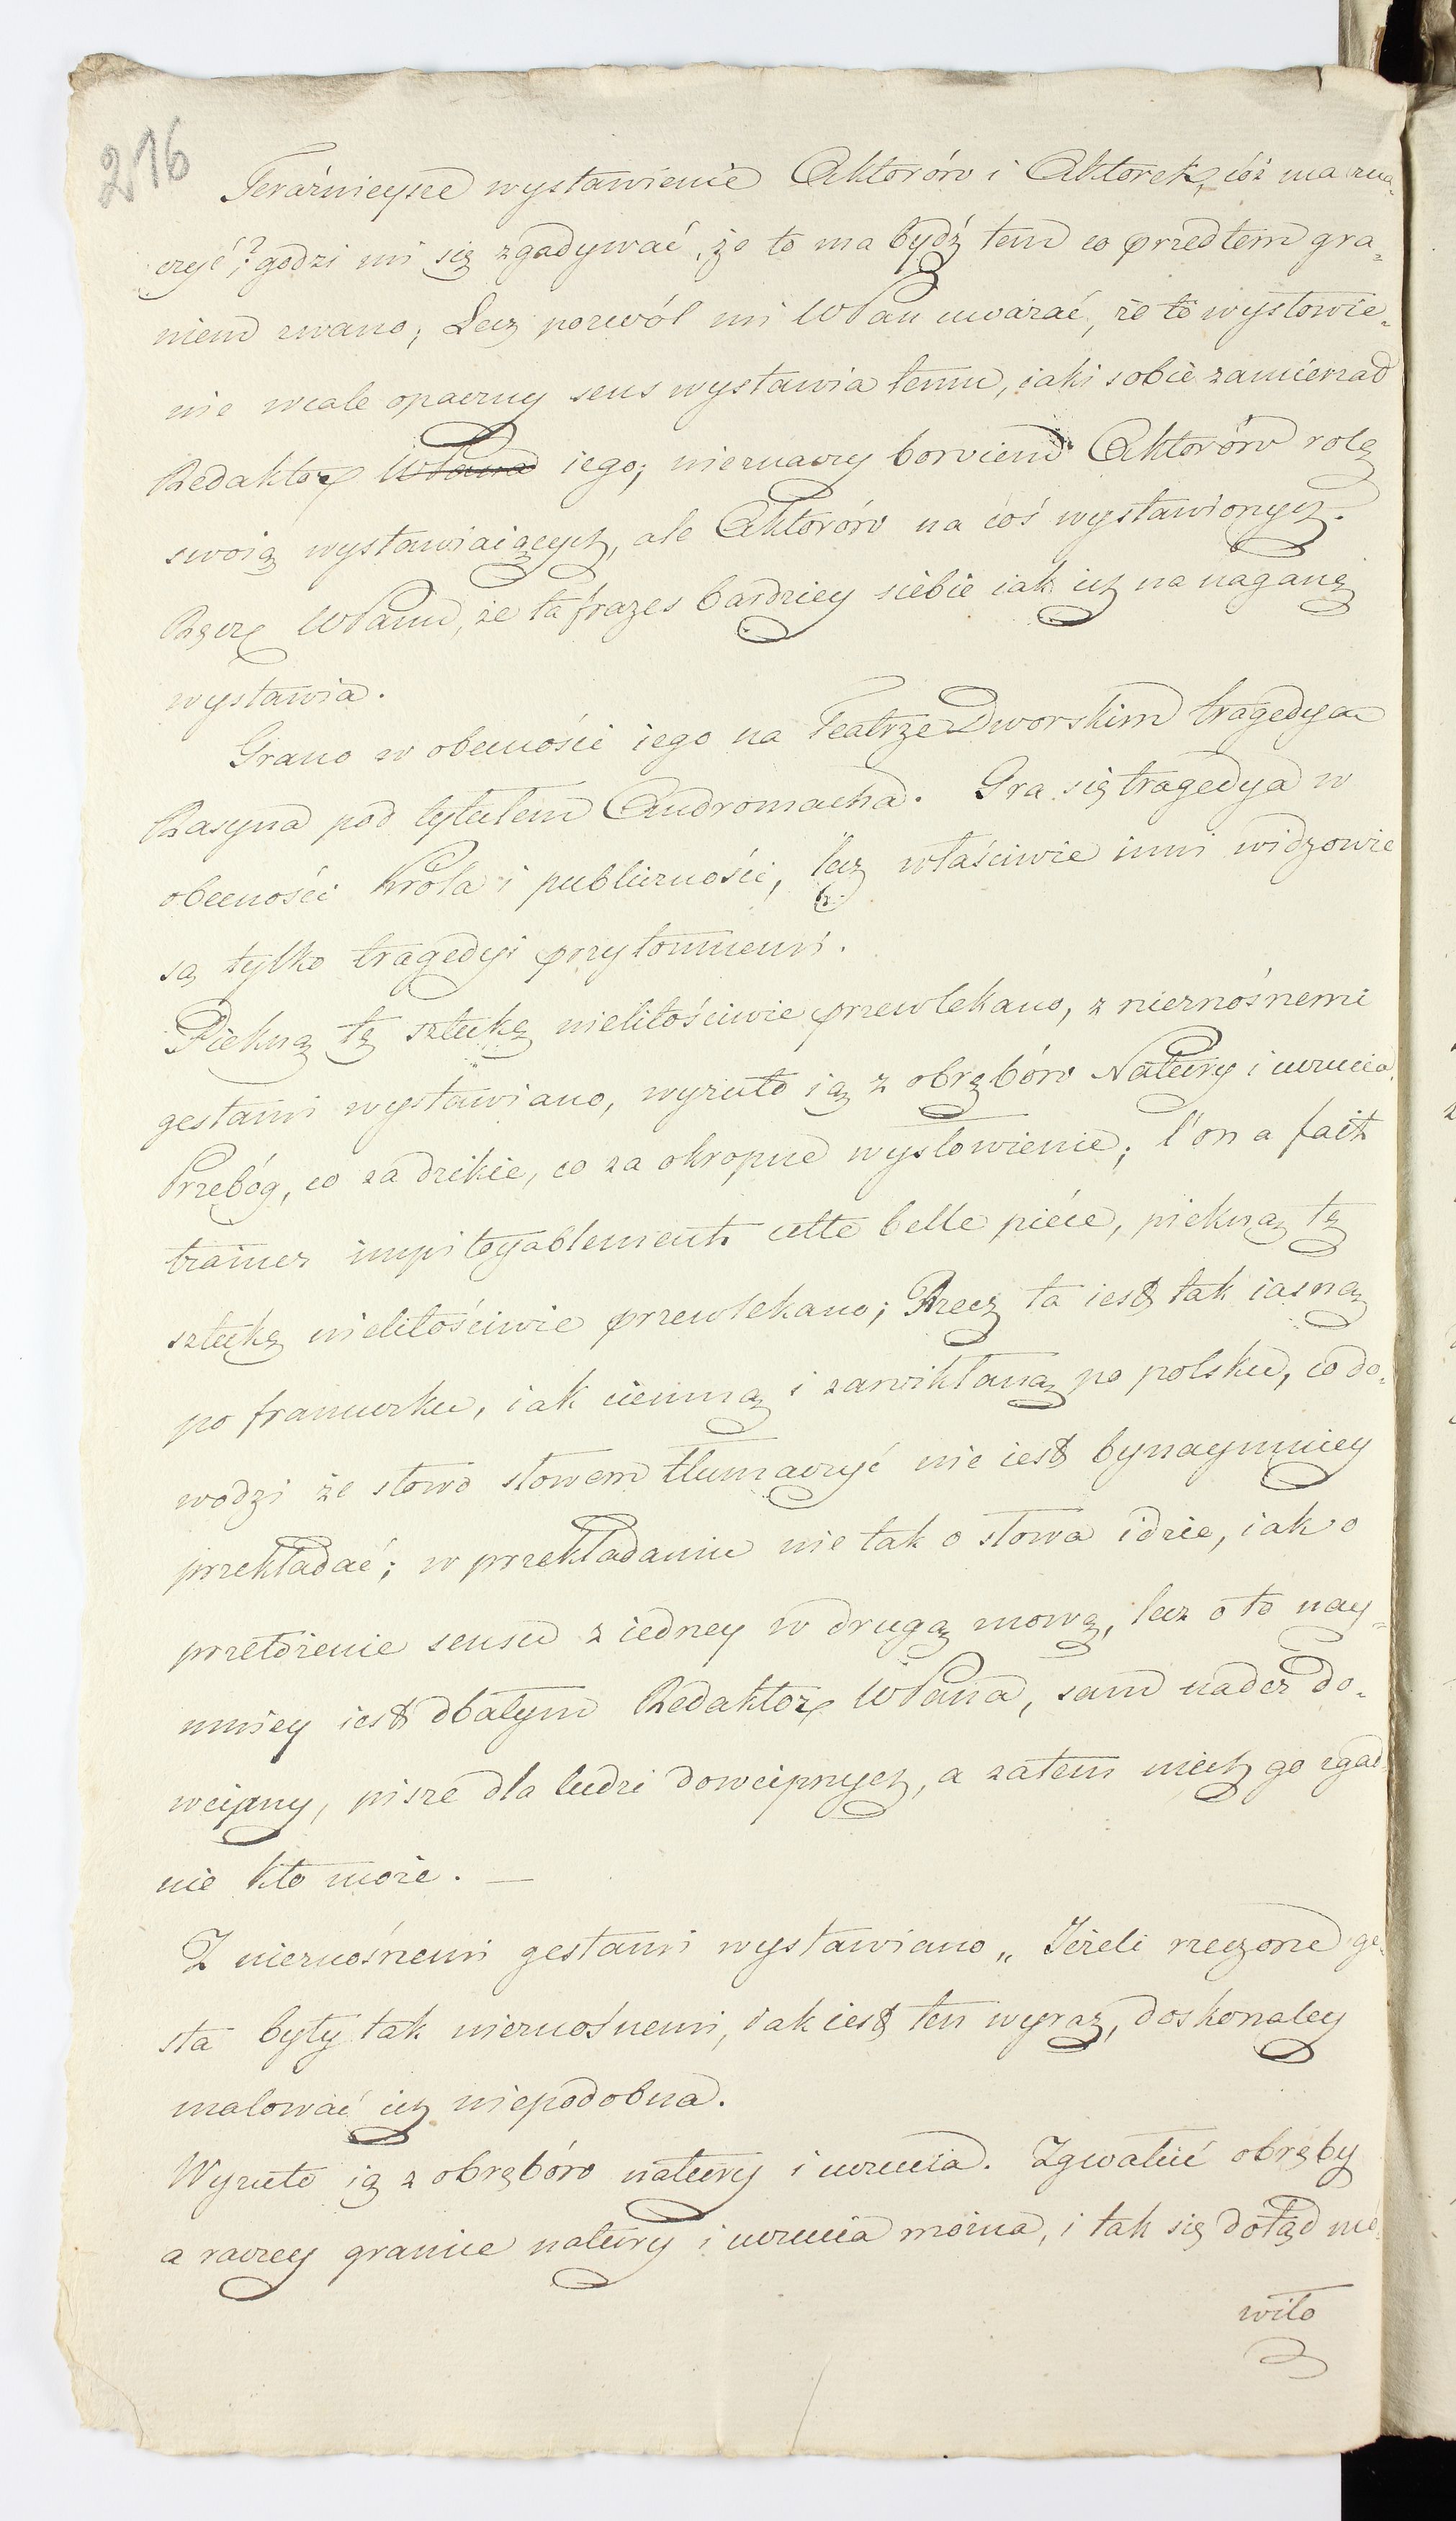 216
Teraźnieysze wystawienie Aktorów i Aktorek, cóż ma zna-
czyć? godzi mi się zgadywać, że to ma bydź tem co przedtem gra-
niem zwano; Lecz pozwól mi WPan uważać, że to wysłowie-
nie wcale opaczny sens wystawia temu, iaki sobie zamierzał
Redaktor WPana iego; nieznaczy bowiem Aktorów rolę
swoią wystawiaiących, ale Aktorów na coś wystawionych.
Ręczę WPanu, że ta frazes bardziey siebie iak ich na naganę
wystawia.
Grano w obecności iego na Teatrze Dworskim tragedyą
Rasyna pod tytułem Andromacha. Gra się tragedya w
obecności Króla i publiczności, lecz właściwie inni widzowie
są tylko tragedyi przytomnemi.
Piękną tę sztukę nielitościwie przewlekano, z nieznośnemi
gestami wystawiano, wyzuto ią z obrębów Natury i uczucia.
Przebóg, co za dzikie, co za okropne wysłowienie; l'on a fait
trainer impitoyablement cette belle piéce, piękną tę
sztukę nielitościwie przewlekano; Rzecz ta iest tak iasną
po francuzku, iak ciemną i zawikłaną po polsku, co do-
wodzi że słowo słowem tłumaczyć nie iest bynaymniey
przekładać; w przekładaniu nie tak o słowa idzie, iak o
przełożenie sensu z iedney w drugą mowę, lecz o to nay-
mniey iest dbałym Redaktor WPana, sam nader do-
wcipny, pisze dla ludzi dowcipnych, a zatem niech go zgad-
nie kto może. —
Z nieznośnemi gestami wystawiano „ Jeżeli rzeczone ge-
sta były tak nieznośnemi, iak iest ten wyraz, doskonaley
malować ich niepodobna.
Wyzuto ią z obrębów natury i uczucia. Zgwałcić obręby
a raczey granice natury i uczucia można, i tak się dotąd mó-
wiło